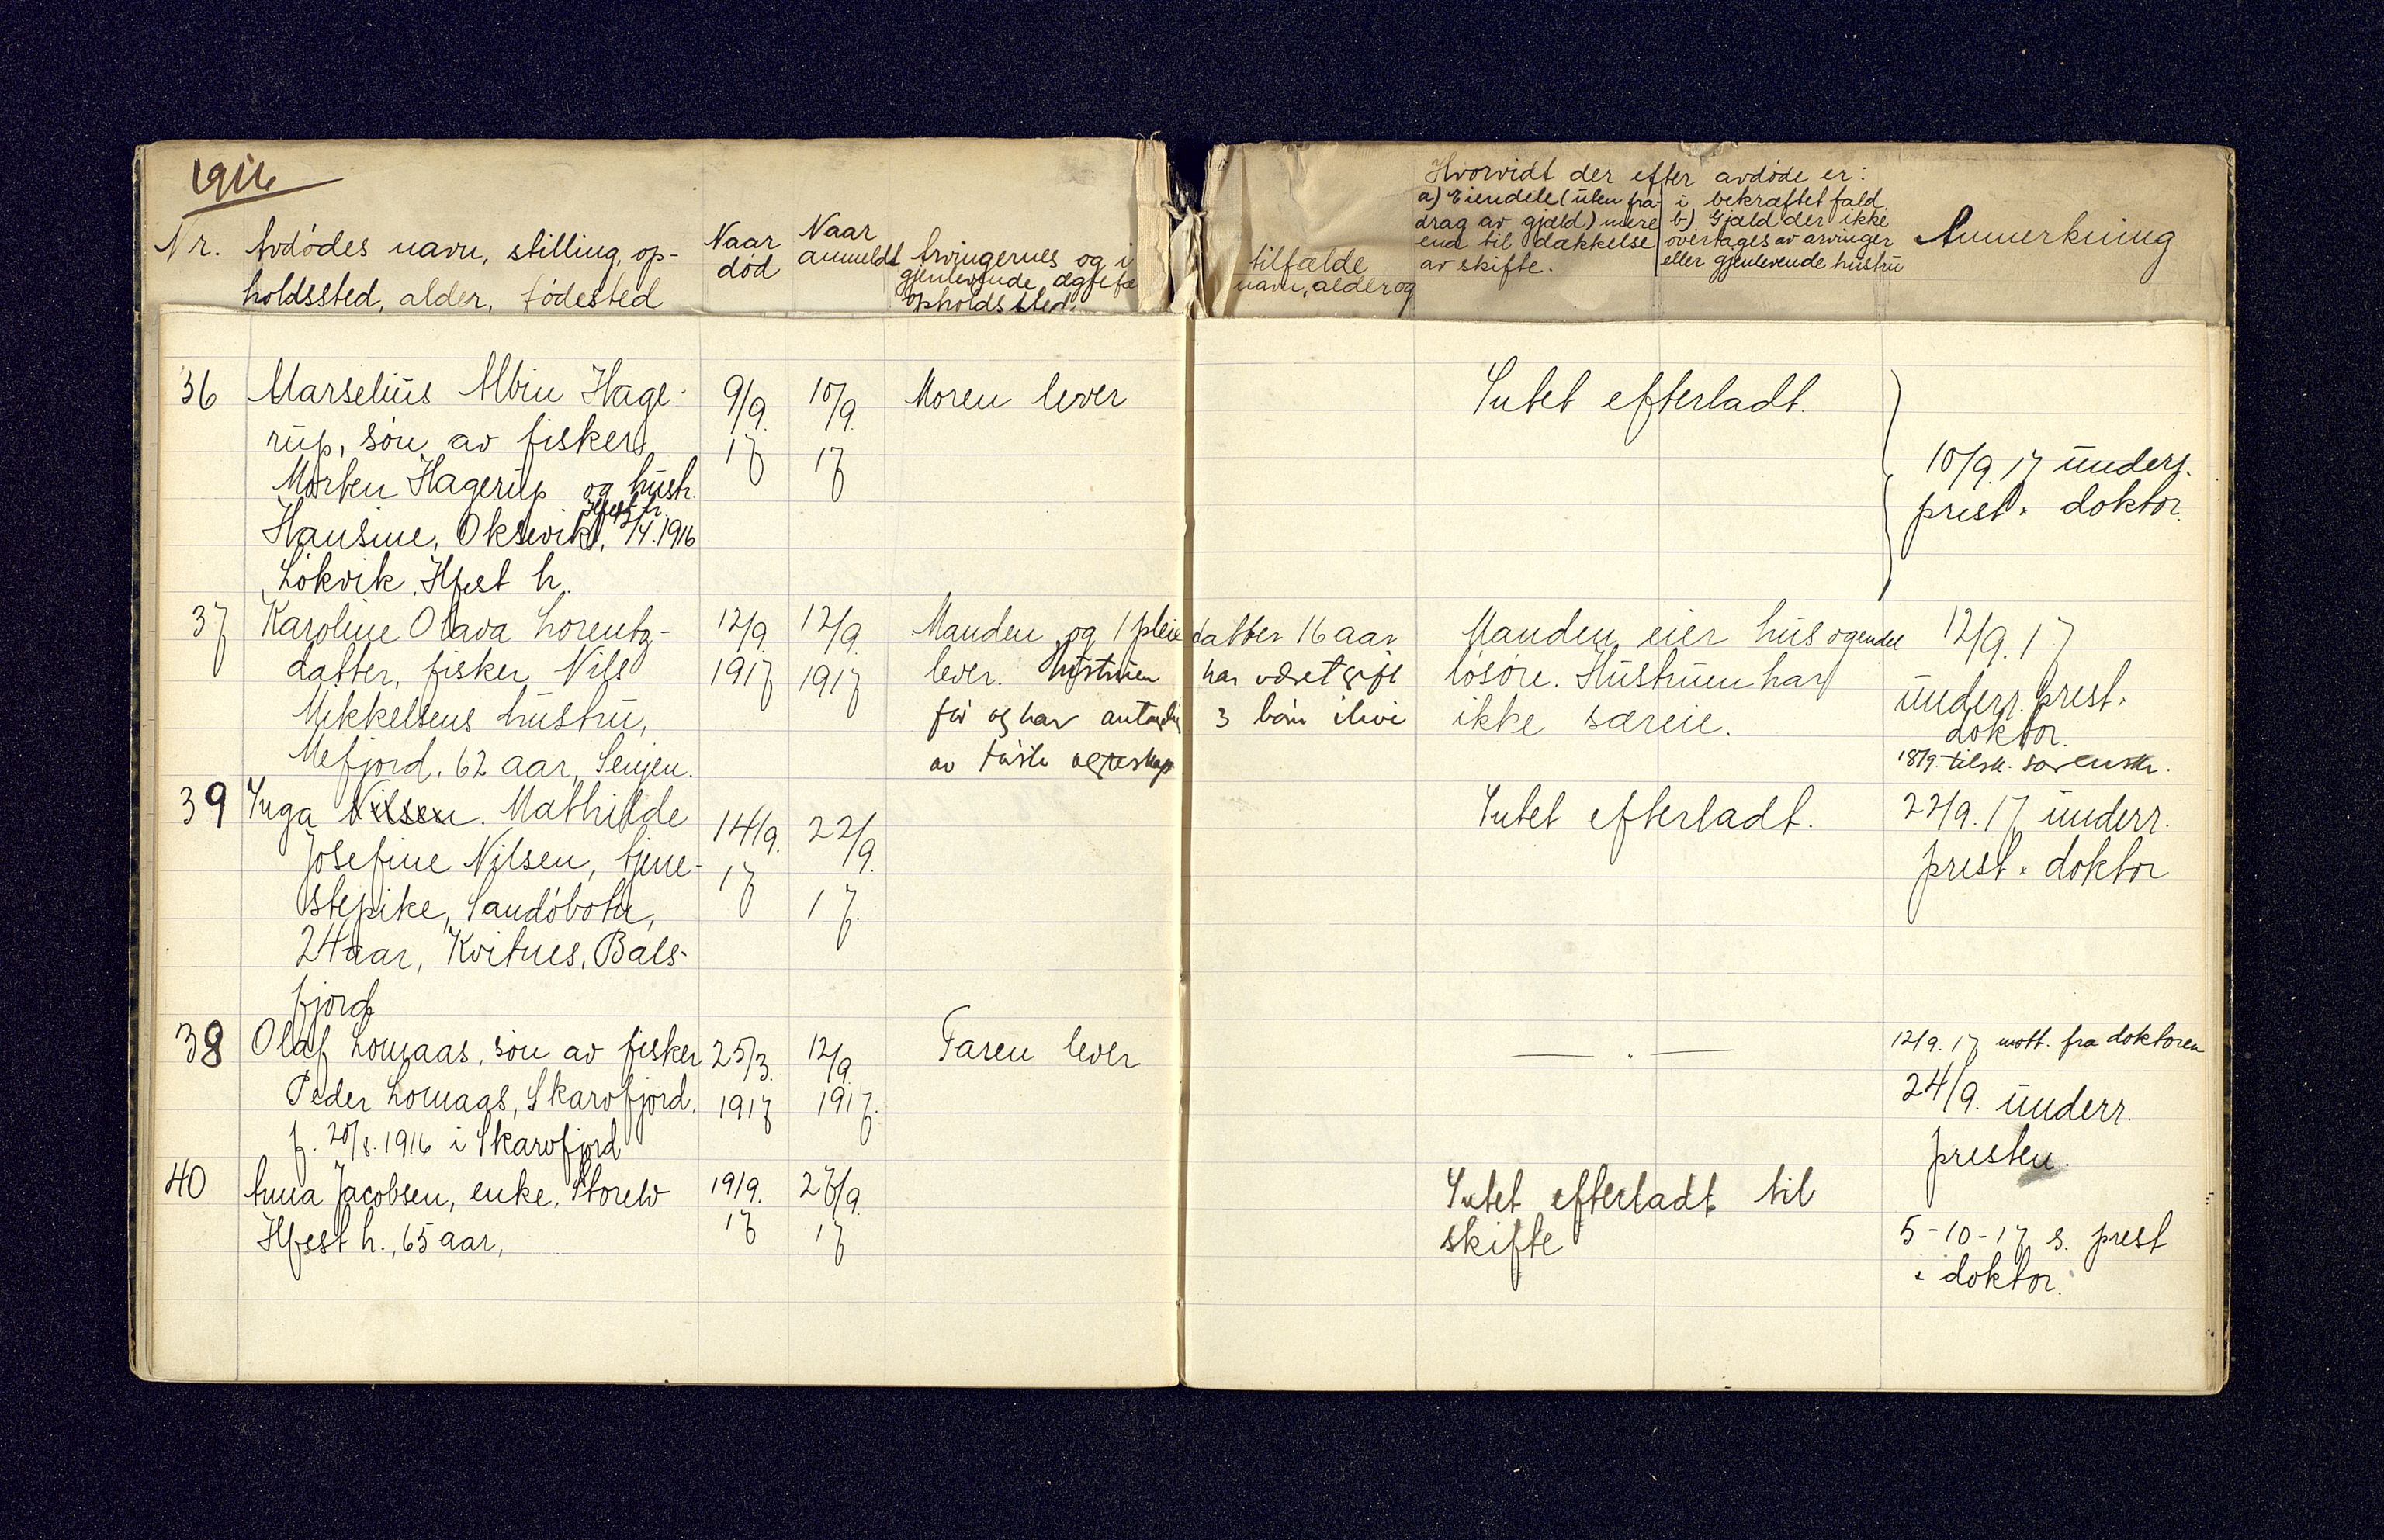 1916
Nr.
Avdødes navn, stilling, op-
holdssted, alder, fødested
Naar
død
Naar
anmeldt
Arvingernes og i
gjenlevende ægtefæ
opholdssted.
tilfælde
navn, alder og
Hvorvidt der efter avdøde er:
a) Eiendele (uten fra-
drag av gjæld) mere
end til dækkelse
av skifte.
i bekræftet fald
b) Gjæld der ikke
overtages av arvinger
eller gjenlevende hustru
Anmerkning
36
Marselius Albin Hage-
rup, søn av fisker
Morten Hagerup og hustr.
Hfest h.
Hansine, Oksvik, /4. 1916
Lökvik, Hfest h.
9/9.
17
10/9.
17
Moren lever
Intet efterladt.
10/9. 17 underr.
prest + doktor.
37
Karoline Olava Lorentz-
datter, fisker Nils
Mikkelsens hustru,
Mefjord, 62 aar, Senjen.
12/9.
1917
12/9.
1917
Manden og 1 pleiedatter 16 aar
lever. Hustruen har været gift
før og har antagelig 3 børn ilive
av første ægteskap
Manden eier hus og endel
løsøre. Hustruen har
ikke særeie.
12/9. 17
underr. prest +
doktor.
18/9. tilsk. sorenskr.
39
Inga Nilsen. Mathilde
Josefine Nilsen, tjene-
stepike, Sandöbotn,
24 aar, Kvitnes, Bals-
fjord
14/9.
17
22/9.
17.
Intet efterladt.
22/9. 17 underr.
prest + doktor
38
Olaf Lomaas, søn av fisker
Peder Lomaas, Skarvfjord,
f. 20/8. 1916 i Skarvfjord
25/3.
1917
12/9.
1917.
Faren lever
— " —
12/9. 17 mott. fra doktoren
24/9. underr.
presten.
40
Anna Jacobsen, enke, Storelv
Hfest h., 65 aar,
19/9.
17
27/9.
17
Intet efterladt til
skifte
5-10-17 s. prest
+ doktor.